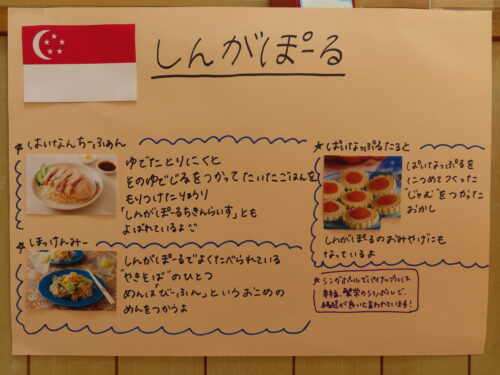 しんがぽーる
☆はいなんちーふぁん
ゆでたとりにくと
そのゆでじるをつかってたいたごはんを
もりつけたりょうり
「しんがぽーるちきんらいす」とも
よばれているよ
☆ほっけんみー
しんがぽーるでよくたべられている
"やきそば"のひとつ
めんは「びーふん」というおこめの
めんをつかうよ
☆ぱいなっぷるたると
ぱいなっぷるを
につめてつくった
"じゃむ"をつかった
おかし
しんがぽーるのおみやげにも
なっているよ
☆シンガポールでパイナップルは
幸福、繁栄のシンボルで、
縁起が良いと言われています!